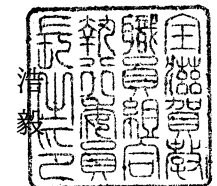 全滋賀教
職員組合
執行委員
長之印
浩
毅